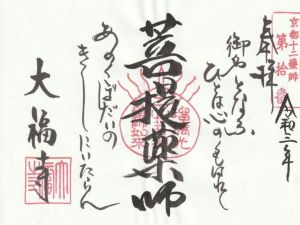 京都十二薬師
第拾番
奉拝
令和三年
御名となふ
ひとは心のくもはれて
菩提薬師
あのくぼだいの
きしにいたらん
大福寺